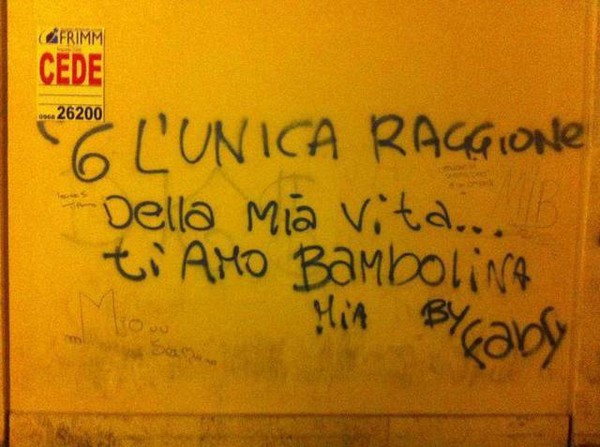 FRIMM
CEDE
0968 26200
6 L'UNICA RAGGIONE
Della Mia Vita...
ti AMO BAMBOLINA
MiA BY Faby
Mio...